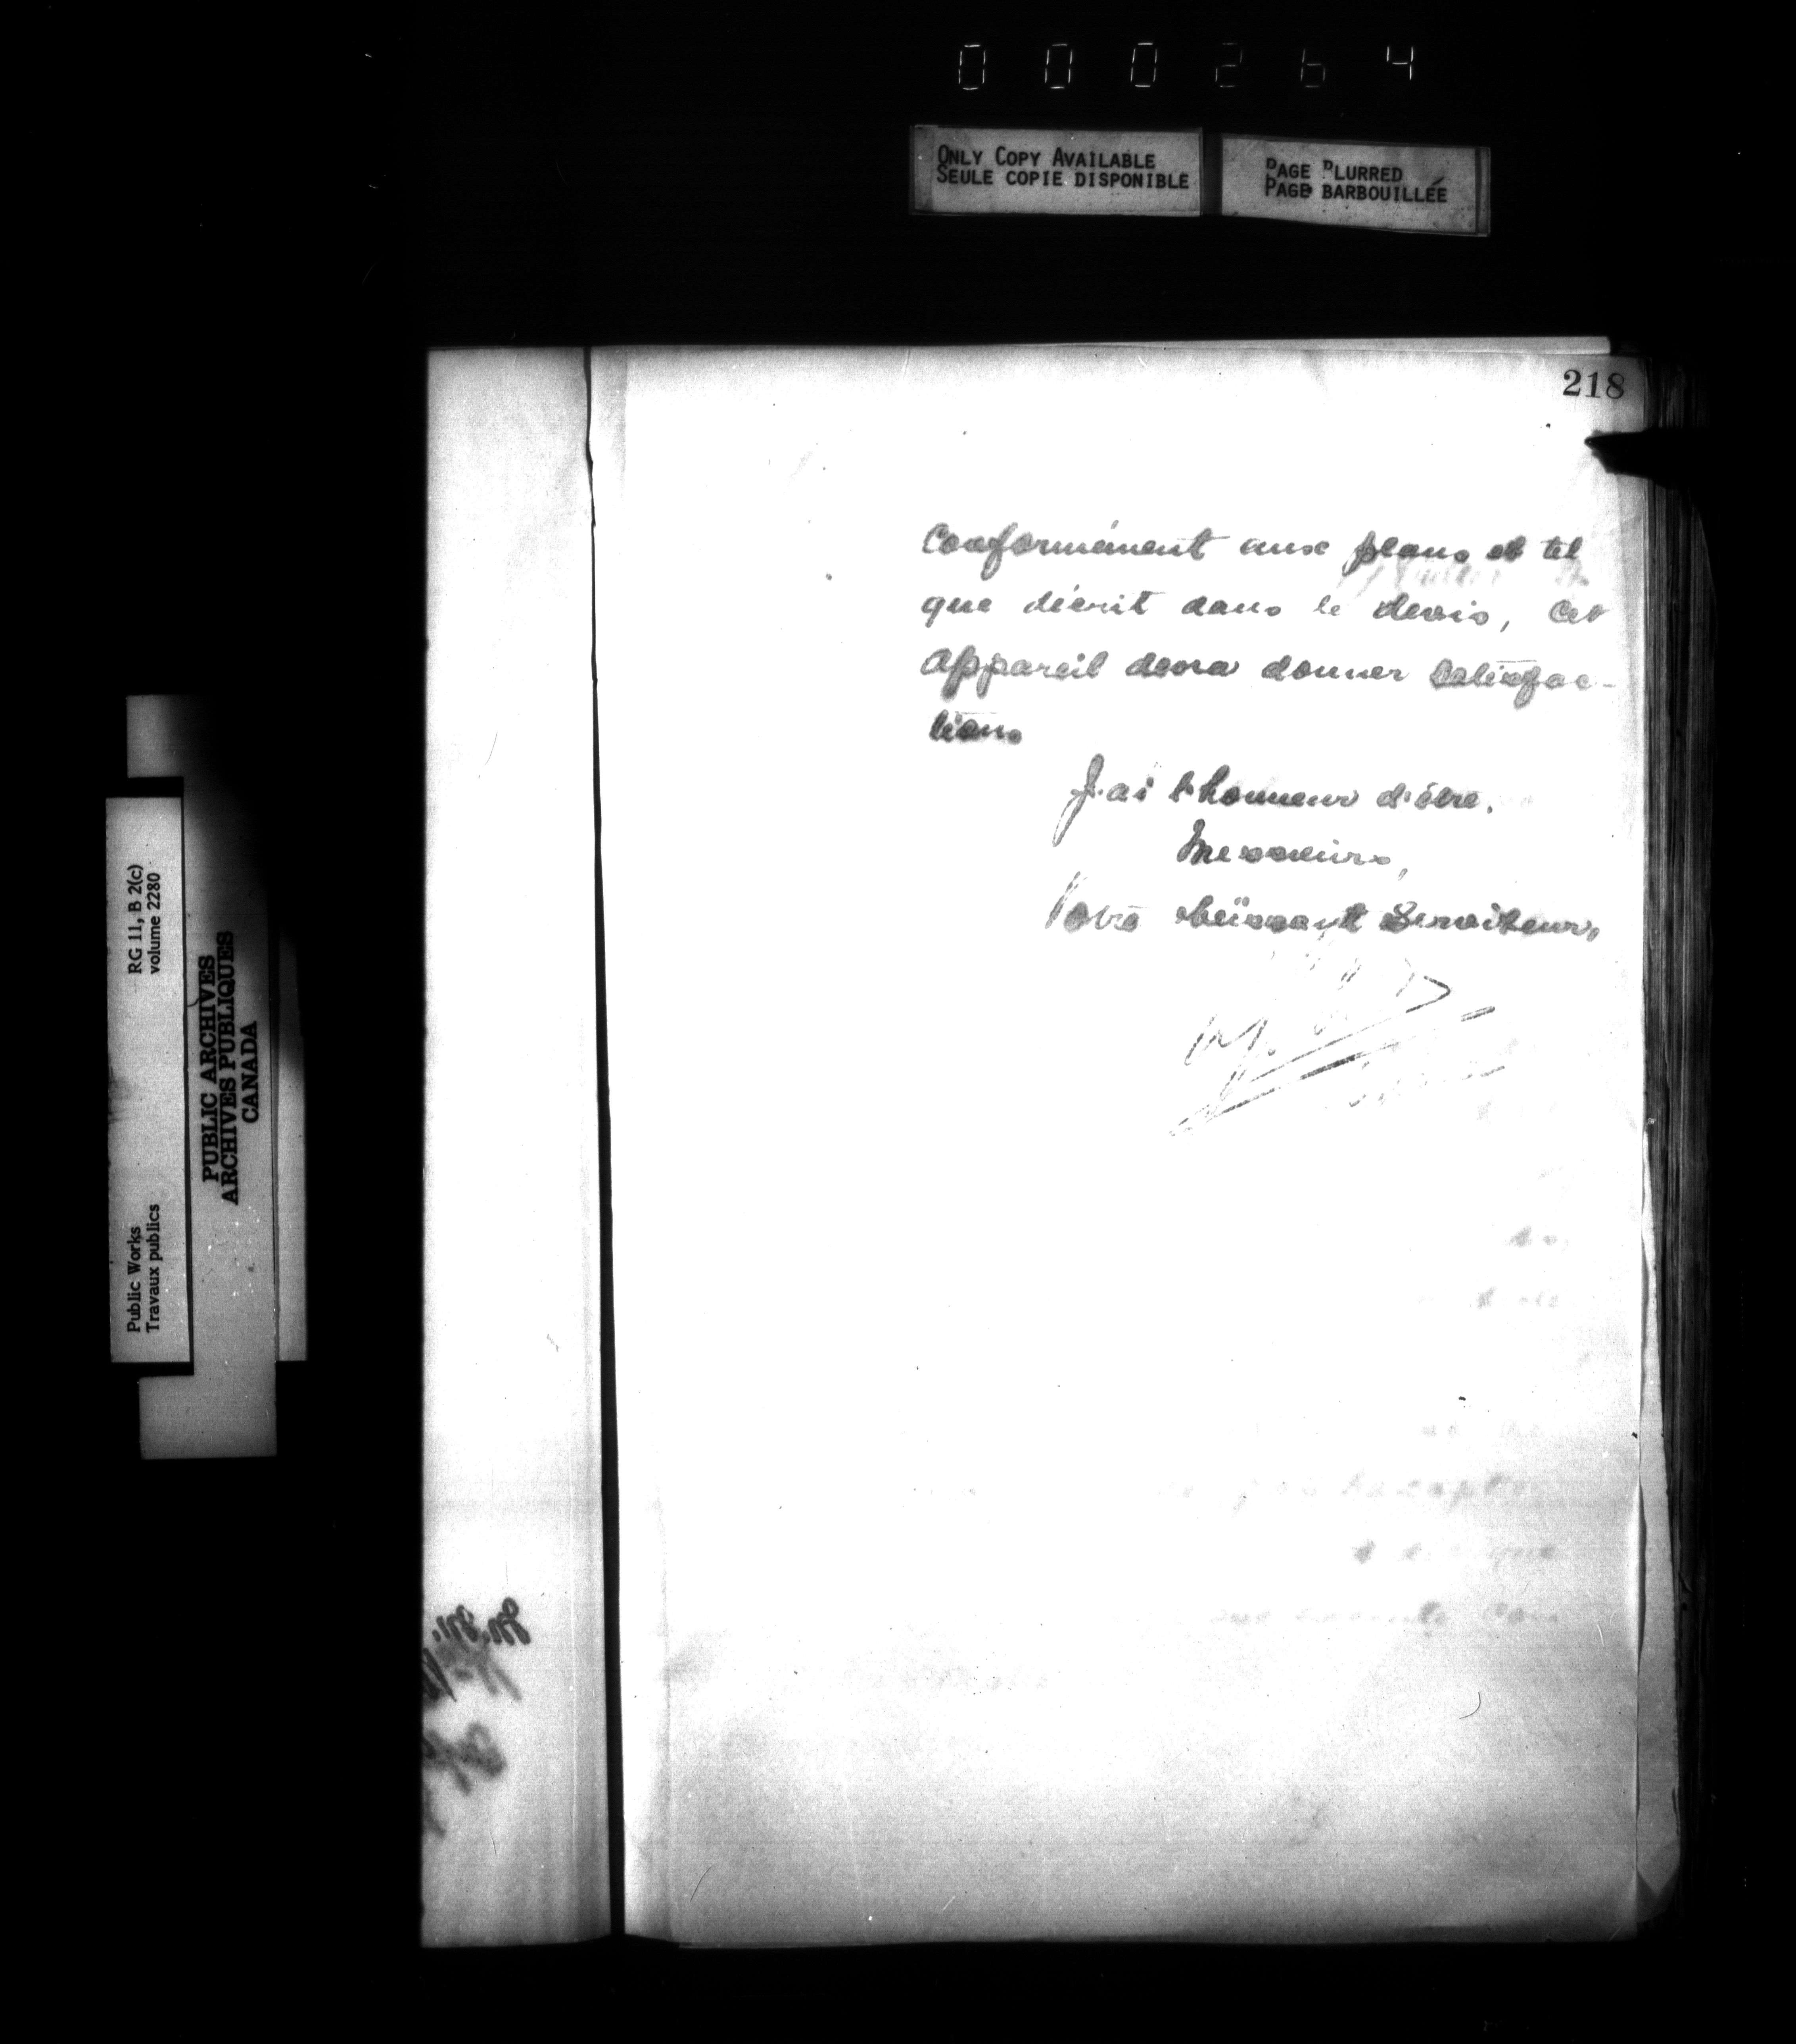 000264
ONLY COPY AVAILABLE
SEULE COPIE DISPONIBLE
PAGE BLURRED
PAGE BARBOUILLÉE
218
Conformément aux plans et tel
que décrit dans le devis, Cet
appareil devra donner Satisfac-
tion.
J'ai l'honneur d'être.
Messieurs,
Votre obéissant Serviteur,
RG 11, B 2(c)
volume 2280
Public Works
Travaux publics
PUBLIC ARCHIVES
ARCHIVES PUBLIQUES
CANADA